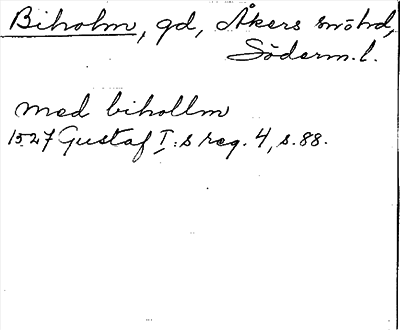 Biholm, gd, Åkers snöhd,
Söderm. l.
med bihollm
1527 Gustaf I:s reg. 4, s. 88.